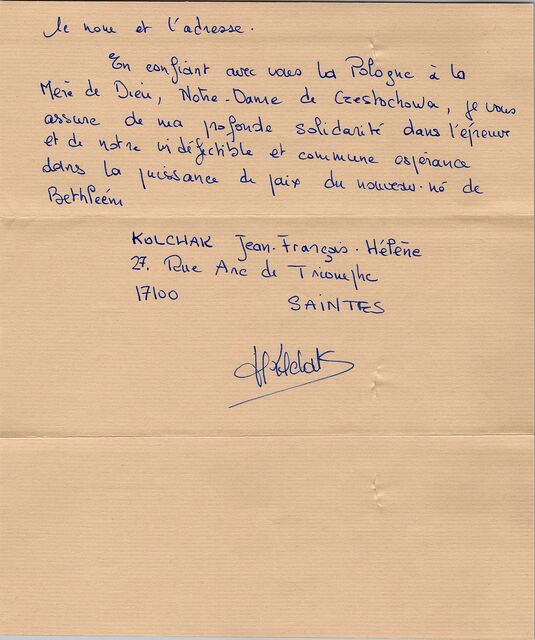 le nom et l'adresse.
En confiant avec vous la Pologne à la
Mère de Dieu, Notre-Dame de Czestochowa, je vous
assure de ma profonde solidarité dans l'épreuve
et de notre indéfectible et commune espérance
dans la puissance de paix du nouveau-né de
Bethléem
KOLCHAK Jean-François-Hélène
27. Rue Arc de Triomphe
17100 SAINTES